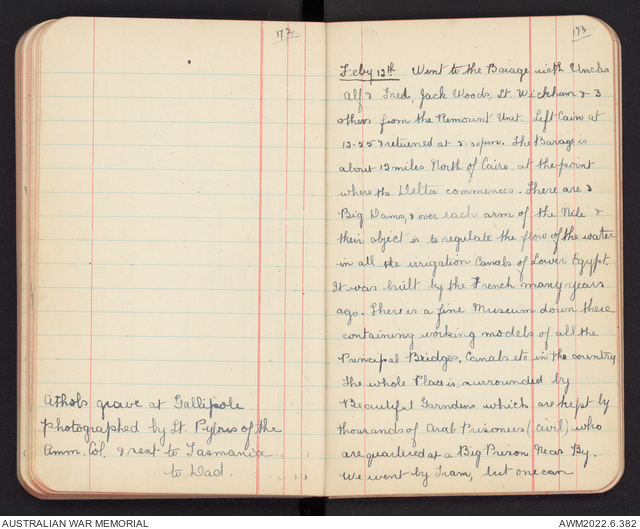 172
Athols grave at Gallipole
photographed by Lt. Pybus of the
Amm. Col. & sent to Tasmania
to Dad.
173
Feby 12th Went to the Barage with Uncles
Alf & Fred, Jack Woods, Lt. Wickham & 3
others from the Remount Unit. Left Cairo at
12.55 & returned at 5.30pm. The Barage is
about 12 miles North of Cairo at the point
where the Delta commences. There are 3
Big Dams, & over each arm of the Nile &
their object is to regulate the flow of the water
in all the irrigation Canals of Lower Egypt.
It was built by the French many years
ago. There is a fine Museum down there
containing working models of all the
Principal Bridges, Canals etc in the country
The whole Place is surrounded by
Beautiful Garndens which are kept by
thousands of Arab Prisoners (civil) who
are quartered at a Big Prison Near By.
We went by Tram, but one can
AUSTRALIAN WAR MEMORIAL
AWM2022.6.382